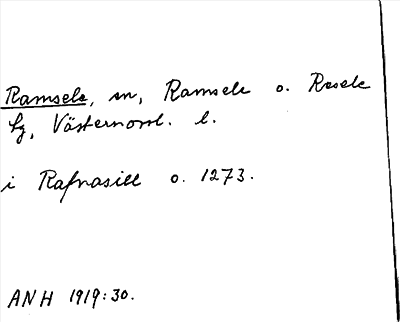 Ramsele, sn, Ramsele o. Resele
tg, Västernorrl. l.
i Rafnasill o. 1273.
ANH 1919:30.